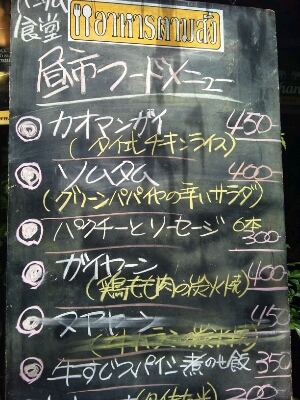 食堂
อาหารตามสั่ง
昼市フードメニュー
カオマンガイ 450
(タイ式チキンライス)
ソムタム 400
(グリーンパパイヤの辛いサラダ)
パクチーとソーセージ 6本 300
ガイヤーン 400
(鶏もも肉の炭火焼)
ヌアヤーン 450
牛すじスパイシー煮のせ飯 350
200